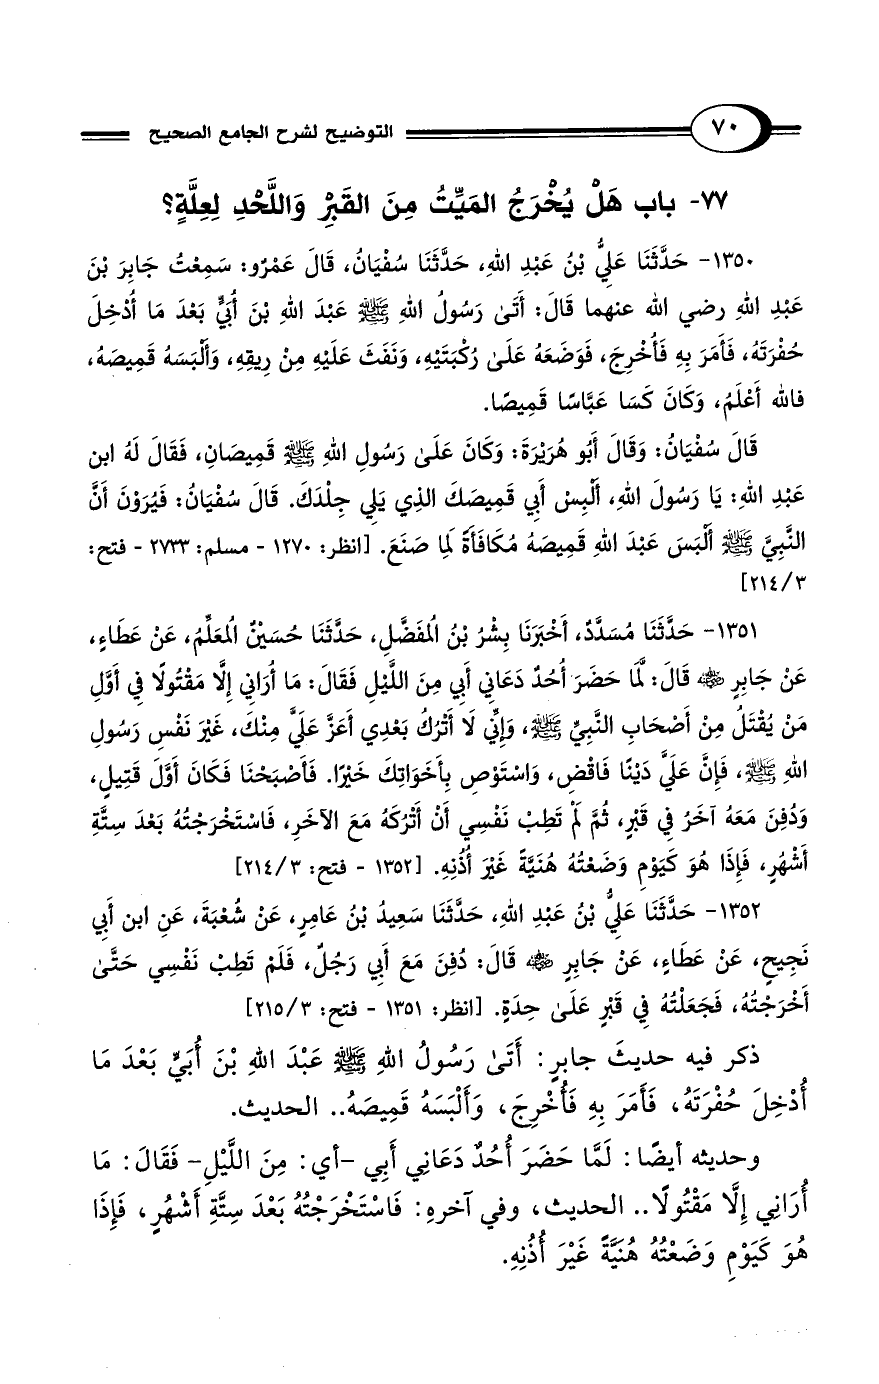 ٧٠
التوضيح لشرح الجامع الصحيح
٧٧- باب هَلْ يُخْرَجُ المَيِّتُ مِنَ القَبْرِ وَاللَّحْدِ لِعِلَّةٍ؟
١٣٥٠- حَدَّثَنَا عَلِيُّ بْنُ عَبْدِ اللهِ، حَدَّثَنَا سُفْيَانُ، قَالَ عَمْرٌو: سَمِعْتُ جَابِرَ بْنَ
عَبْدِ اللهِ رضي الله عنهما قَالَ: أَتَىٰ رَسُولُ اللهِ ﷺ عَبْدَ اللهِ بْنَ أُبَيٍّ بَعْدَ مَا أُدْخِلَ
حُفْرَتَهُ، فَأَمَرَ بِهِ فَأُخْرِجَ، فَوَضَعَهُ عَلَىٰ رُكْبَتَيْهِ، وَنَفَثَ عَلَيْهِ مِنْ رِيقِهِ، وَأَلْبَسَهُ قَمِيصَهُ،
فالله أَعْلَمُ، وَكَانَ كَسَا عَبَّاسًا قَمِيصًا.
قَالَ سُفْيَانُ: وَقَالَ أَبُو هُرَيْرَةَ: وَكَانَ عَلَىٰ رَسُولِ اللهِ ﷺ قَمِيصَانِ، فَقَالَ لَهُ ابن
عَبْدِ اللهِ: يَا رَسُولَ اللهِ، أَلْبِسْ أَبِي قَمِيصَكَ الذِي يَلِي جِلْدَكَ. قَالَ سُفْيَانُ: فَيُرَوْنَ أَنَّ
النَّبِيَّ ﷺ أَلْبَسَ عَبْدَ اللهِ قَمِيصَهُ مُكَافَأَةً لِمَا صَنَعَ. [انظر: ١٢٧٠ - مسلم: ٢٧٣٣ - فتح:
٣/٢١٤]
١٣٥١- حَدَّثَنَا مُسَدَّدٌ، أَخْبَرَنَا بِشْرُ بْنُ المُفَضَّلِ، حَدَّثَنَا حُسَيْنٌ المُعَلِّمُ، عَنْ عَطَاءٍ،
عَنْ جَابِرٍ ﷺ قَالَ: لَمَّا حَضَرَ أُحُدٌ دَعَانِي أَبِي مِنَ اللَّيْلِ فَقَالَ: مَا أُرَانِي إِلَّا مَقْتُولًا فِي أَوَّلِ
مَنْ يُقْتَلُ مِنْ أَصْحَابِ النَّبِيِّ ﷺ، وَإِنِّي لَا أَتْرُكُ بَعْدِي أَعَزَّ عَلَيَّ مِنْكَ، غَيْرَ نَفْسِ رَسُولِ
اللهِ ﷺ، فَإِنَّ عَلَيَّ دَيْنًا فَاقْضِ، وَاسْتَوْصِ بِأَخَوَاتِكَ خَيْرًا. فَأَصْبَحْنَا فَكَانَ أَوَّلَ قَتِيلٍ،
وَدُفِنَ مَعَهُ آخَرُ فِي قَبْرٍ، ثُمَّ لَمْ تَطِبْ نَفْسِي أَنْ أَتْرُكَهُ مَعَ الآخَرِ، فَاسْتَخْرَجْتُهُ بَعْدَ سِتَّةِ
أَشْهُرٍ، فَإِذَا هُوَ كَيَوْمِ وَضَعْتُهُ هُنَيَّةً غَيْرَ أُذُنِهِ. [١٣٥٢ - فتح: ٣/٢١٤]
١٣٥٢- حَدَّثَنَا عَلِيُّ بْنُ عَبْدِ اللهِ، حَدَّثَنَا سَعِيدُ بْنُ عَامِرٍ، عَنْ شُعْبَةَ، عَنِ ابن أَبِي
نَجِيحٍ، عَنْ عَطَاءٍ، عَنْ جَابِرٍ قَالَ: دُفِنَ مَعَ أَبِي رَجُلٌ، فَلَمْ تَطِبْ نَفْسِي حَتَّىٰ
أَخْرَجْتُهُ، فَجَعَلْتُهُ فِي قَبْرٍ عَلَىٰ حِدَةٍ. [انظر: ١٣٥١ - فتح: ٣/٢١٥]
ذكر فيه حديثَ جابرٍ: أَتَىٰ رَسُولُ اللهِ ﷺ عَبْدَ اللهِ بْنَ أُبَيٍّ بَعْدَ مَا
أُدْخِلَ حُفْرَتَهُ، فَأَمَرَ بِهِ فَأُخْرِجَ، وَأَلْبَسَهُ قَمِيصَهُ.. الحديث.
وحديثه أيضًا: لَمَّا حَضَرَ أُحُدٌ دَعَانِي أَبِي -أي: مِنَ اللَّيْلِ- فَقَالَ: مَا
أُرَانِي إِلَّا مَقْتُولًا.. الحديث، وفي آخرهِ: فَاسْتَخْرَجْتُهُ بَعْدَ سِتَّةِ أَشْهُرٍ، فَإِذَا
هُوَ كَيَوْمِ وَضَعْتُهُ هُنَيَّةً غَيْرَ أُذُنِهِ.